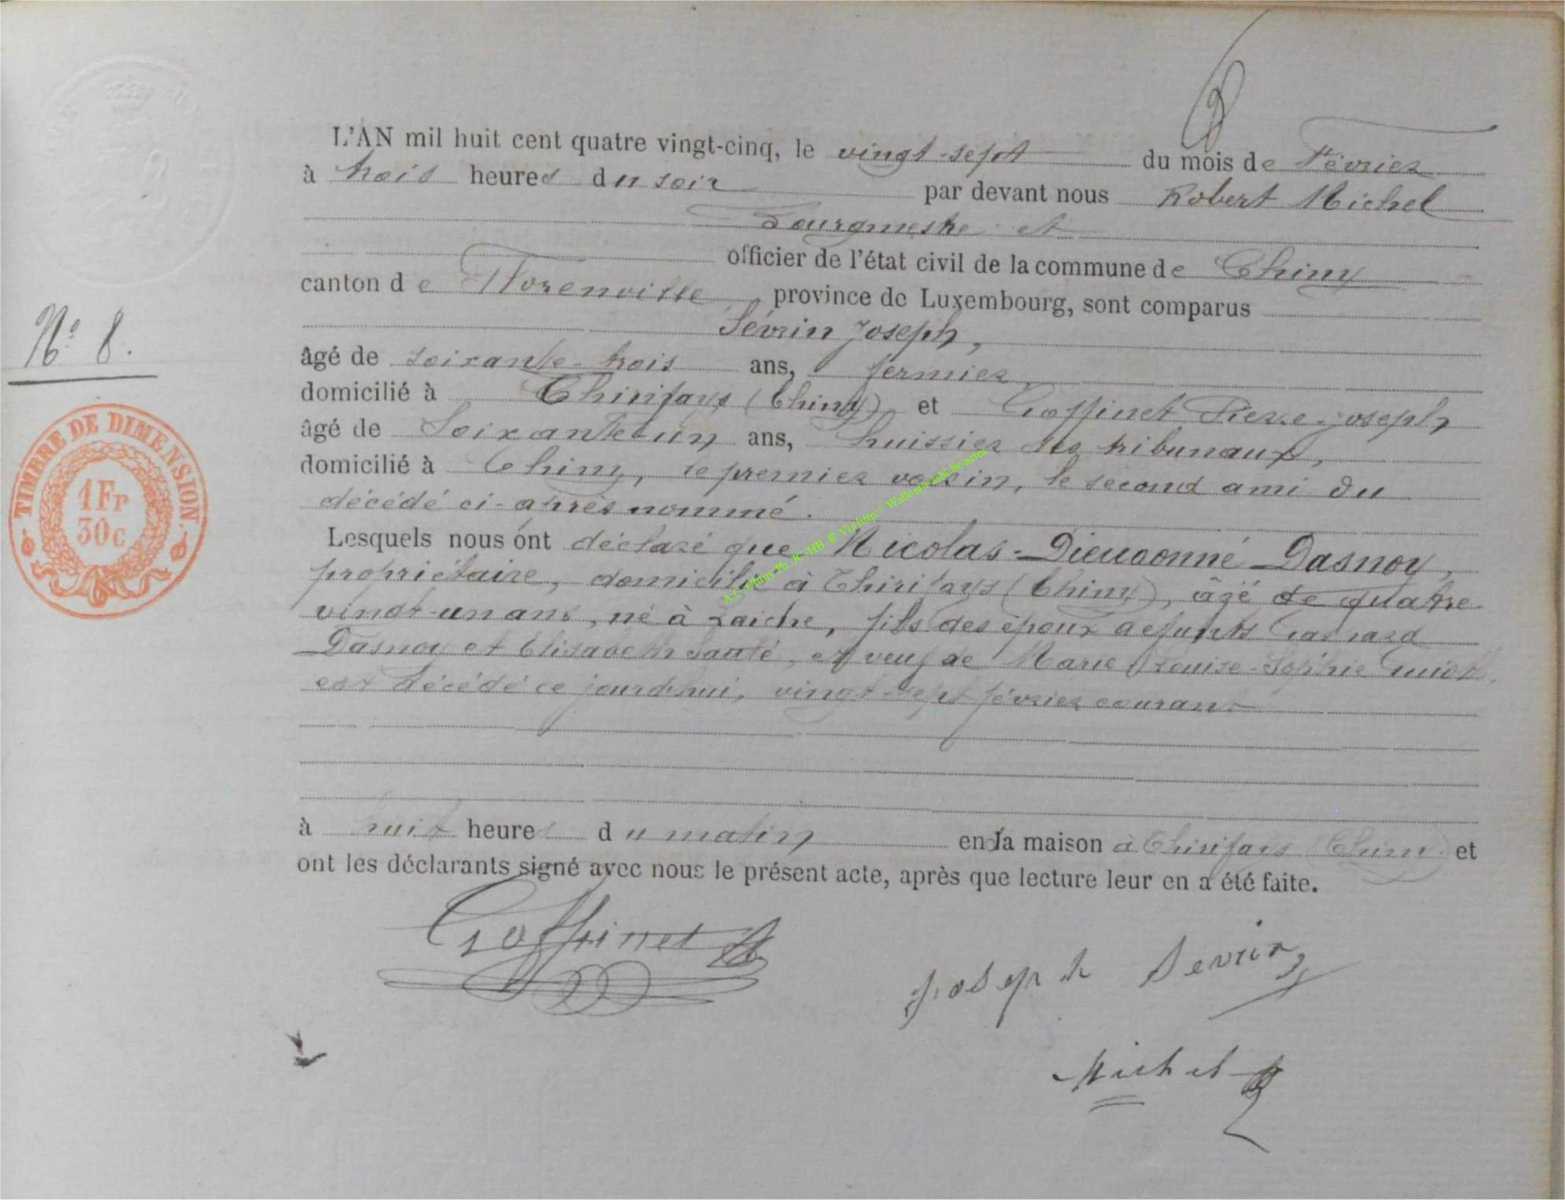 L'AN mil huit cent quatre vingt-cinq, le vingt-sept du mois de Février
à trois heures du soir par devant nous Robert Michel
Bourgmestre et
officier de l'état civil de la commune de Chiny
canton de Florenville, province de Luxembourg, sont comparus
Sévrin Joseph,
âgé de soixante-trois ans, fermier,
domicilié à Chirifays (Chiny) et Goffinet Pierre-joseph,
âgé de Soixante-un ans, huissier des tribunaux,
domicilié à Chiny, le premier voisin, le second ami du
décédé ci-après nommé.
Lesquels nous ont déclaré que Nicolas-Dieudonné Dasnoy,
propriétaire, domicilié à Chirifays (Chiny), âgé de quatre-
vingt-un ans, né à Laiche, fils des époux défunts
Dasnoy et Elisabeth, et veuf de Marie Louise-Sophie
est décédé ce jourd'hui, vingt-sept février courant
à huit heures du matin en la maison à Chirifays (Chiny) et
ont les déclarants signé avec nous le présent acte, après que lecture leur en a été faite.
Goffinet
Joseph Sevrin
Michel R
N° 8.
TIMBRE DE DIMENSION.
1 Fr
30c